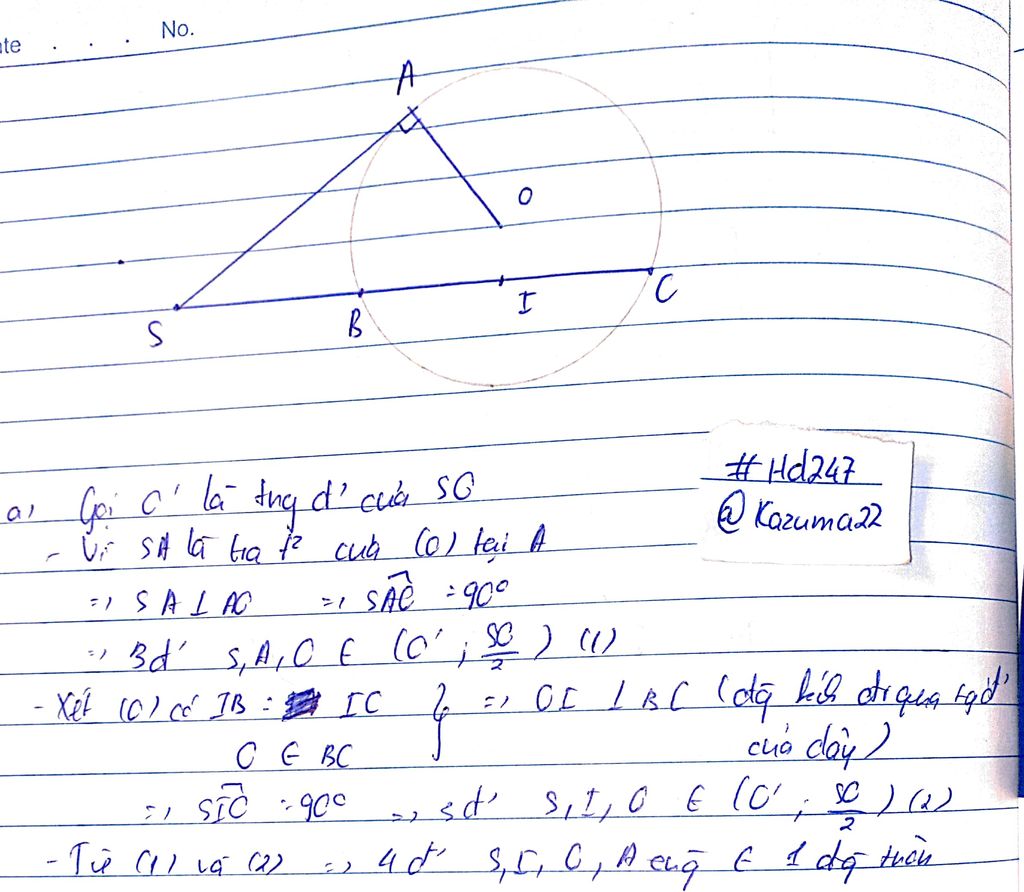 ate . . . No.
A
O
S B I C
#Hd247
@Kazuma22
a, Gọi O' là tng đ' của SO
- Vì SA là tia t² của (O) tại A
=> SA ⊥ AO => SAO = 90°
=> 3đ' S, A, O ∈ (O' ; SO/2) (1)
- Xét (O) có IB = IC } => OI ⊥ BC (đg kính đi qua tgđ'
O ∈ BC của dây)
=> SIO = 90° => 3đ' S, I, O ∈ (O' ; SO/2) (2)
- Từ (1) và (2) => 4đ' S, I, O, A cùg ∈ 1 đg tròn